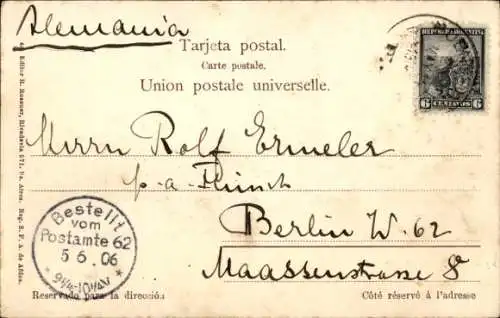 Alemania
Tarjeta postal.
Carte postale.
Union postale universelle.
REPUBLICA ARGENTINA
6 CENTAVOS 6
Herrn Rolf Ermeler
Berlin W. 62
Maassenstrasse 8
Bestellt
vom
Postamte 62
5 6. 06
Editor R. Rosauer, Rivadavia 571, Bs. Aires. Reg. S. F. A. de Allos.
Reservado para la dirección
Côté réservé à l'adresse